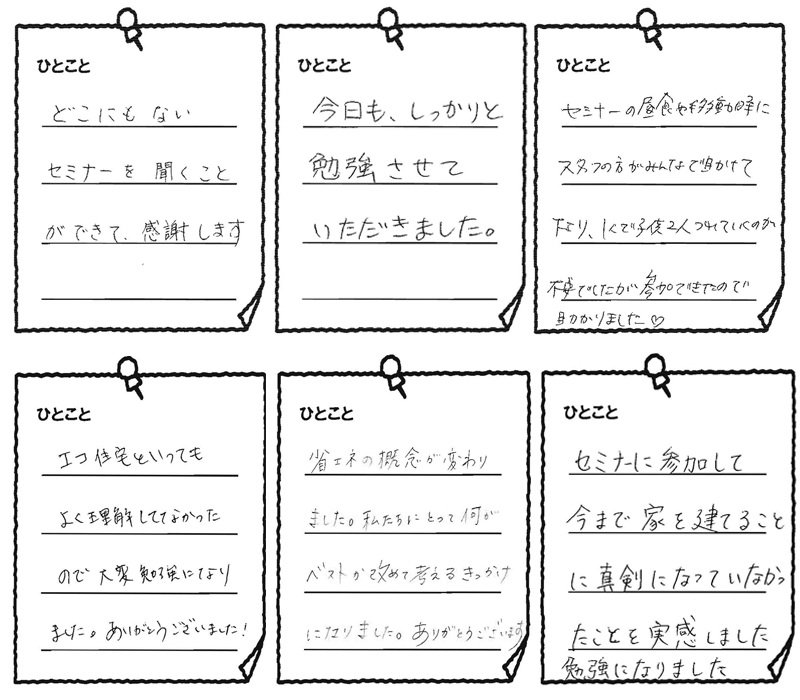 ひとこと
どこにも ない
セミナーを 聞くこと
ができて、感謝します
ひとこと
今日も、しっかりと
勉強させて
いただきました。
ひとこと
セミナーの昼食や移動時に
スタッフの方がみんなで声かけて
くださり、1人で子供2人つれていくのが
不安でしたが参加できたので
助かりました♡
ひとこと
エコ住宅といっても
よく理解してなかった
ので 大変勉強になり
ました。ありがとうございました!
ひとこと
省エネの概念が変わり
ました。私たちにとって何が
ベストか改めて考えるきっかけ
になりました。ありがとうございます
ひとこと
セミナーに参加して
今まで家を建てること
に真剣になっていなかっ
たことを実感しました
勉強になりました